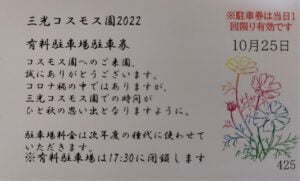 三光コスモス園2022
有料駐車場駐車券
コスモス園へのご来園、
誠にありがとうございます。
コロナ禍の中ではありますが、
三光コスモス園での時間が
ひと秋の思い出となりますように。
駐車場料金は次年度の種代に使わせて
いただきます。
※有料駐車場は17:30に閉鎖します
※駐車券は当日1
回限り有効です
10月25日
425